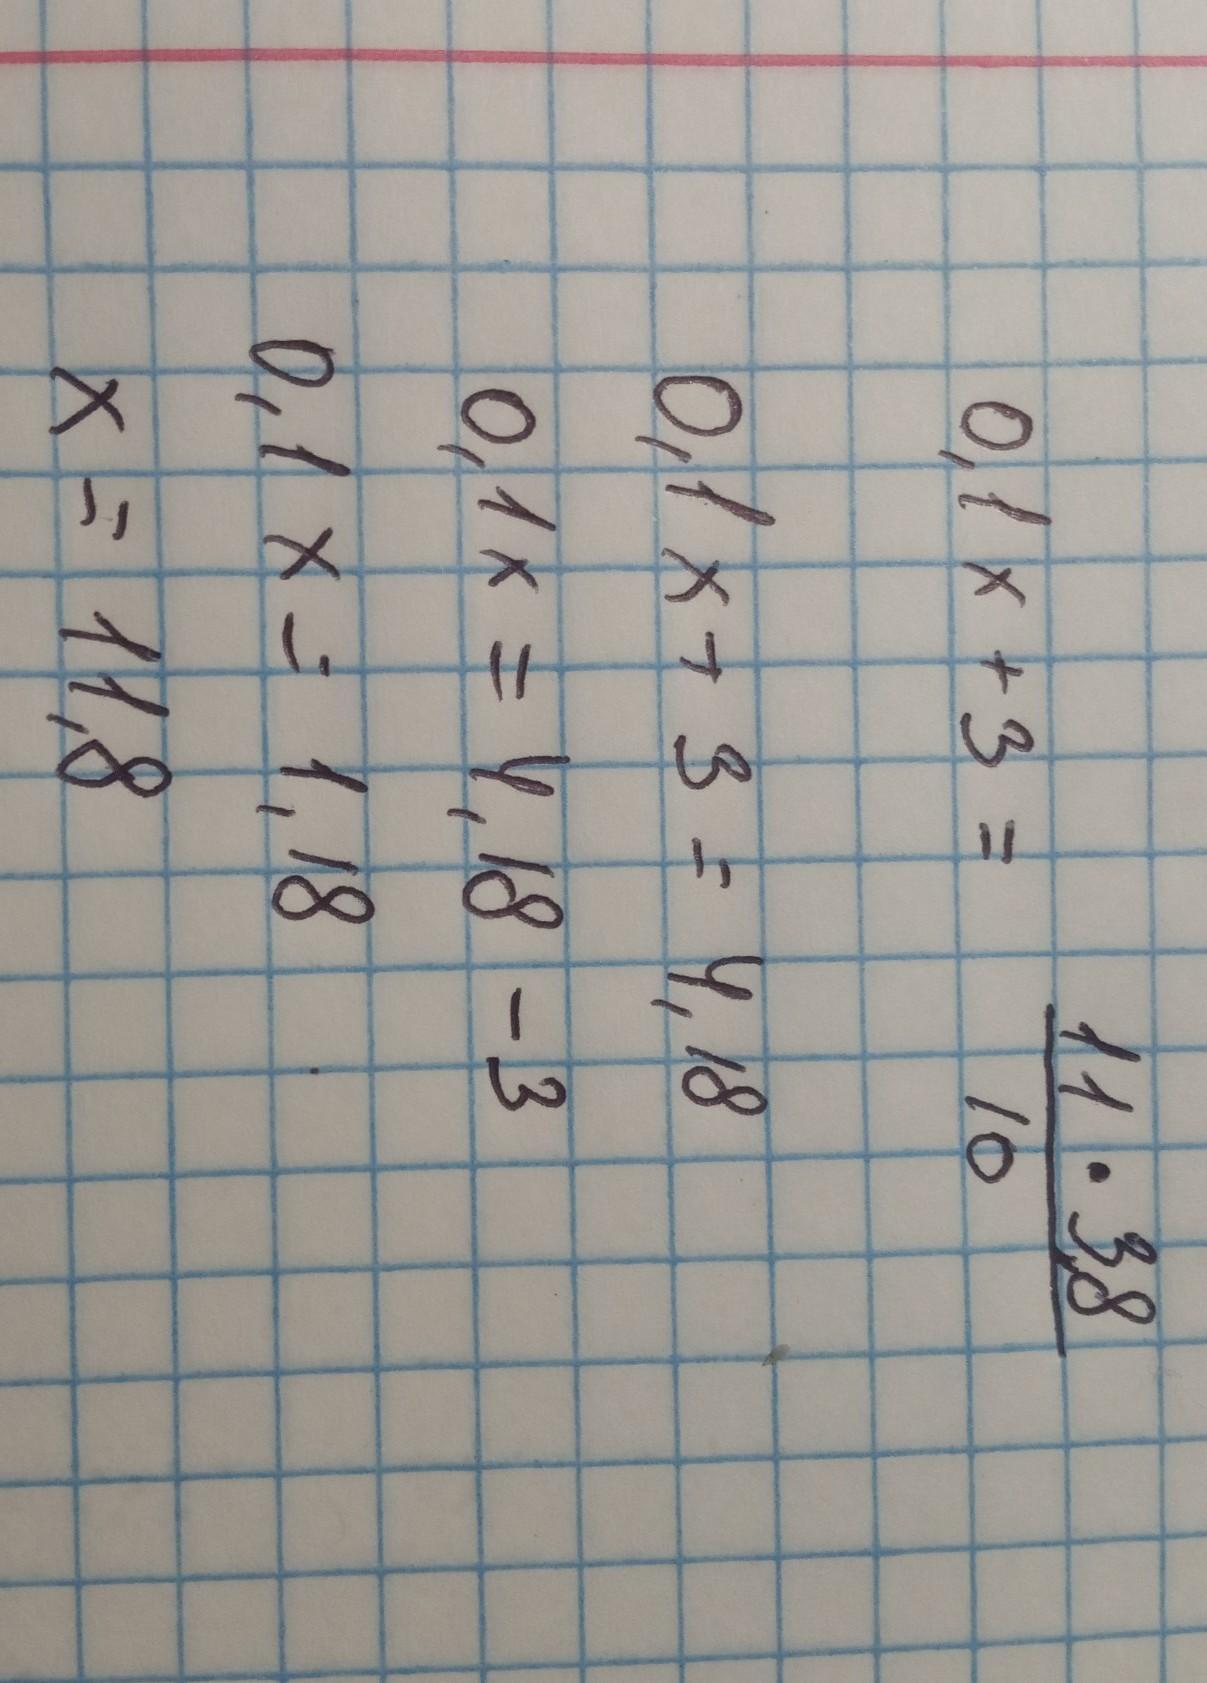 0,1x + 3 = 11 · 3,8 / 10
0,1x + 3 = 4,18
0,1x = 4,18 - 3
0,1x = 1,18
x = 11,8